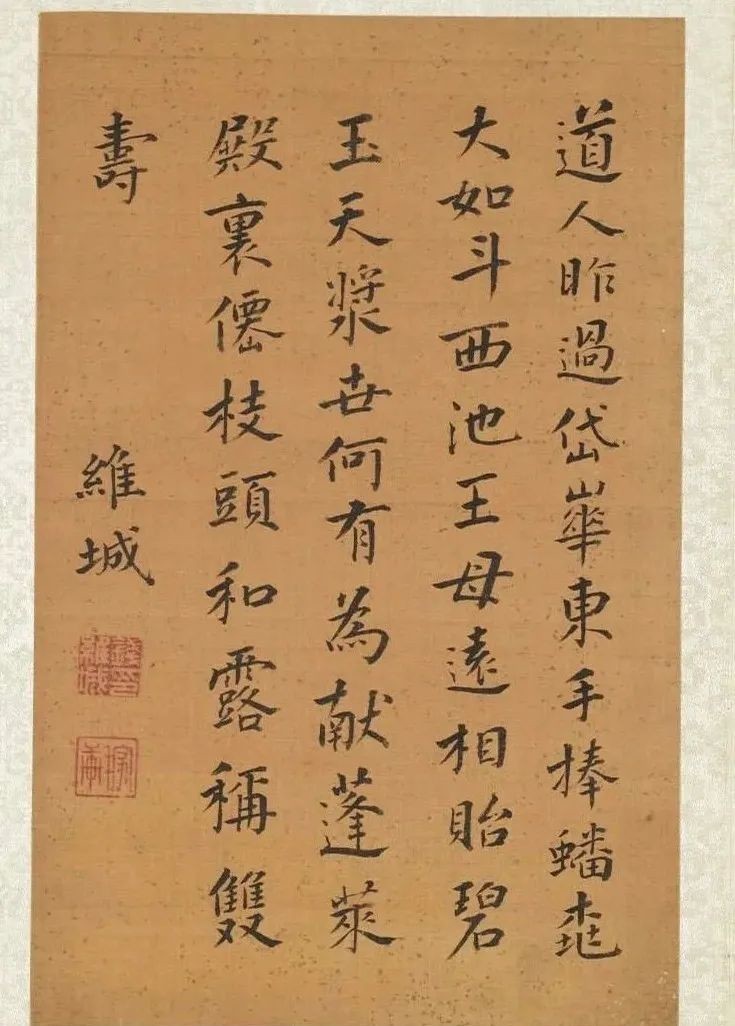 道人昨過岱崋東手捧蟠桃
大如斗西池王母遠相貽碧
玉天漿世何有為献蓬萊
殿裏僊枝頭和露稱雙
壽
維城